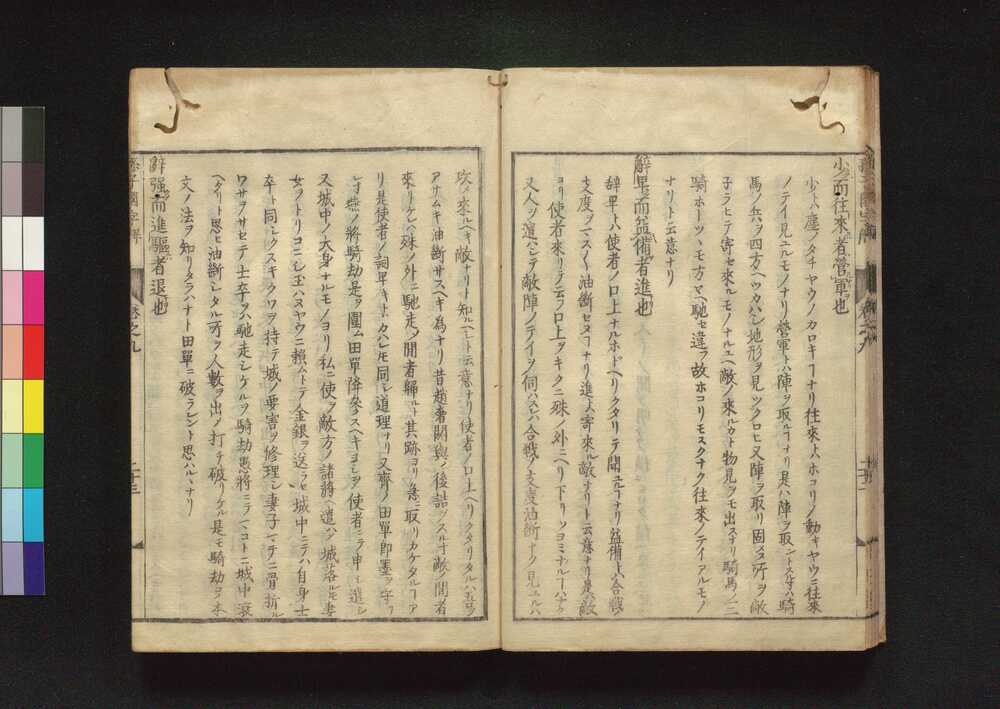 少而往來者營軍也
少トハ塵ノタチヤウノカロキヿナリ往來トハホコリノ動キヤウニ往來
ノテイ見ユルモノナリ營軍トハ陣ヲ取ルヿナリ是ハ陣ヲ取ントスル時ハ騎
馬ノ兵ヲ四方ヘツカハシ地形ヲ見ツクロヒ又陣ヲ取リ固メタル所ヲ敵
子ラヒテ寄セ來ルモノナルユヘ敵ノ來ルカト物見ヲモ出スナリ騎馬ノ二三
騎ホーツヽモ方々ヘ馳セ違フ故ホコリモスクナク往來ノテイアルモノ
ナリト云意ナリ
辭卑而益備者進也
辭卑トハ使者ノ口上ナルホドヘリクタリテ聞ユルヿナリ益備トハ合戰ノ
支度ヲマスヽ油斷セヌヿナリ進トハ寄來ル敵ナリト云意ナリ是ハ敵
ヨリ使者來リテ云フ口上ヲキクニ殊ノ外ニヘリ下リツヨミナルヿハナク
又人ヲ遣ハシテ敵陣ノテイヲ伺ハスレハ合戰ノ支度油斷ナク見ユルハ
攻メ來ルヘキ敵ナリト知ルヘシト云意ナリ使者ノ口上ヘリクタリタルハ吾ヲ
アサムキ油斷サスヘキ為ナリ昔趙奢閼與ノ後詰ヲスル時敵ノ間者
來リケレハ殊ノ外ニ馳走シ間者歸ルト其跡ヨリ急ニ取リカケタルヿア
リ是使者ノ詞卑キトカハレトモ同シ道理ナリ又齊ノ田單即墨ヲ守リ
シ時燕ノ將騎劫是ヲ圍ム田單降參スヘキヨシヲ使者ニテ申シ遣シ
又城中ノ大身ナルモノヨリ私ニ使ヲ敵方ノ諸將ヘ遣ハシ城落ルトモ妻
女ヲトリコニシ玉ハヌヤウニ賴ムトテ金銀ヲ送ラセ城中ニテハ自身士
卒ト同シクスキクワヲ持テ城ノ要害ヲ修理シ妻子マテニ骨折ル
ワサヲサセテ士卒ヲハ馳走シケルヲ騎劫愚將ニテマコトニ城中衰
ヘタリト思ヒ油斷シタル所ヲ人數ヲ出シ打チ破リケル是モ騎劫ヲ本
文ノ法ヲ知リタラハナト田單ニ破ラレント思ハルヽナリ
辭强而進驅者退也
孫子國字解
卷之九
二十三